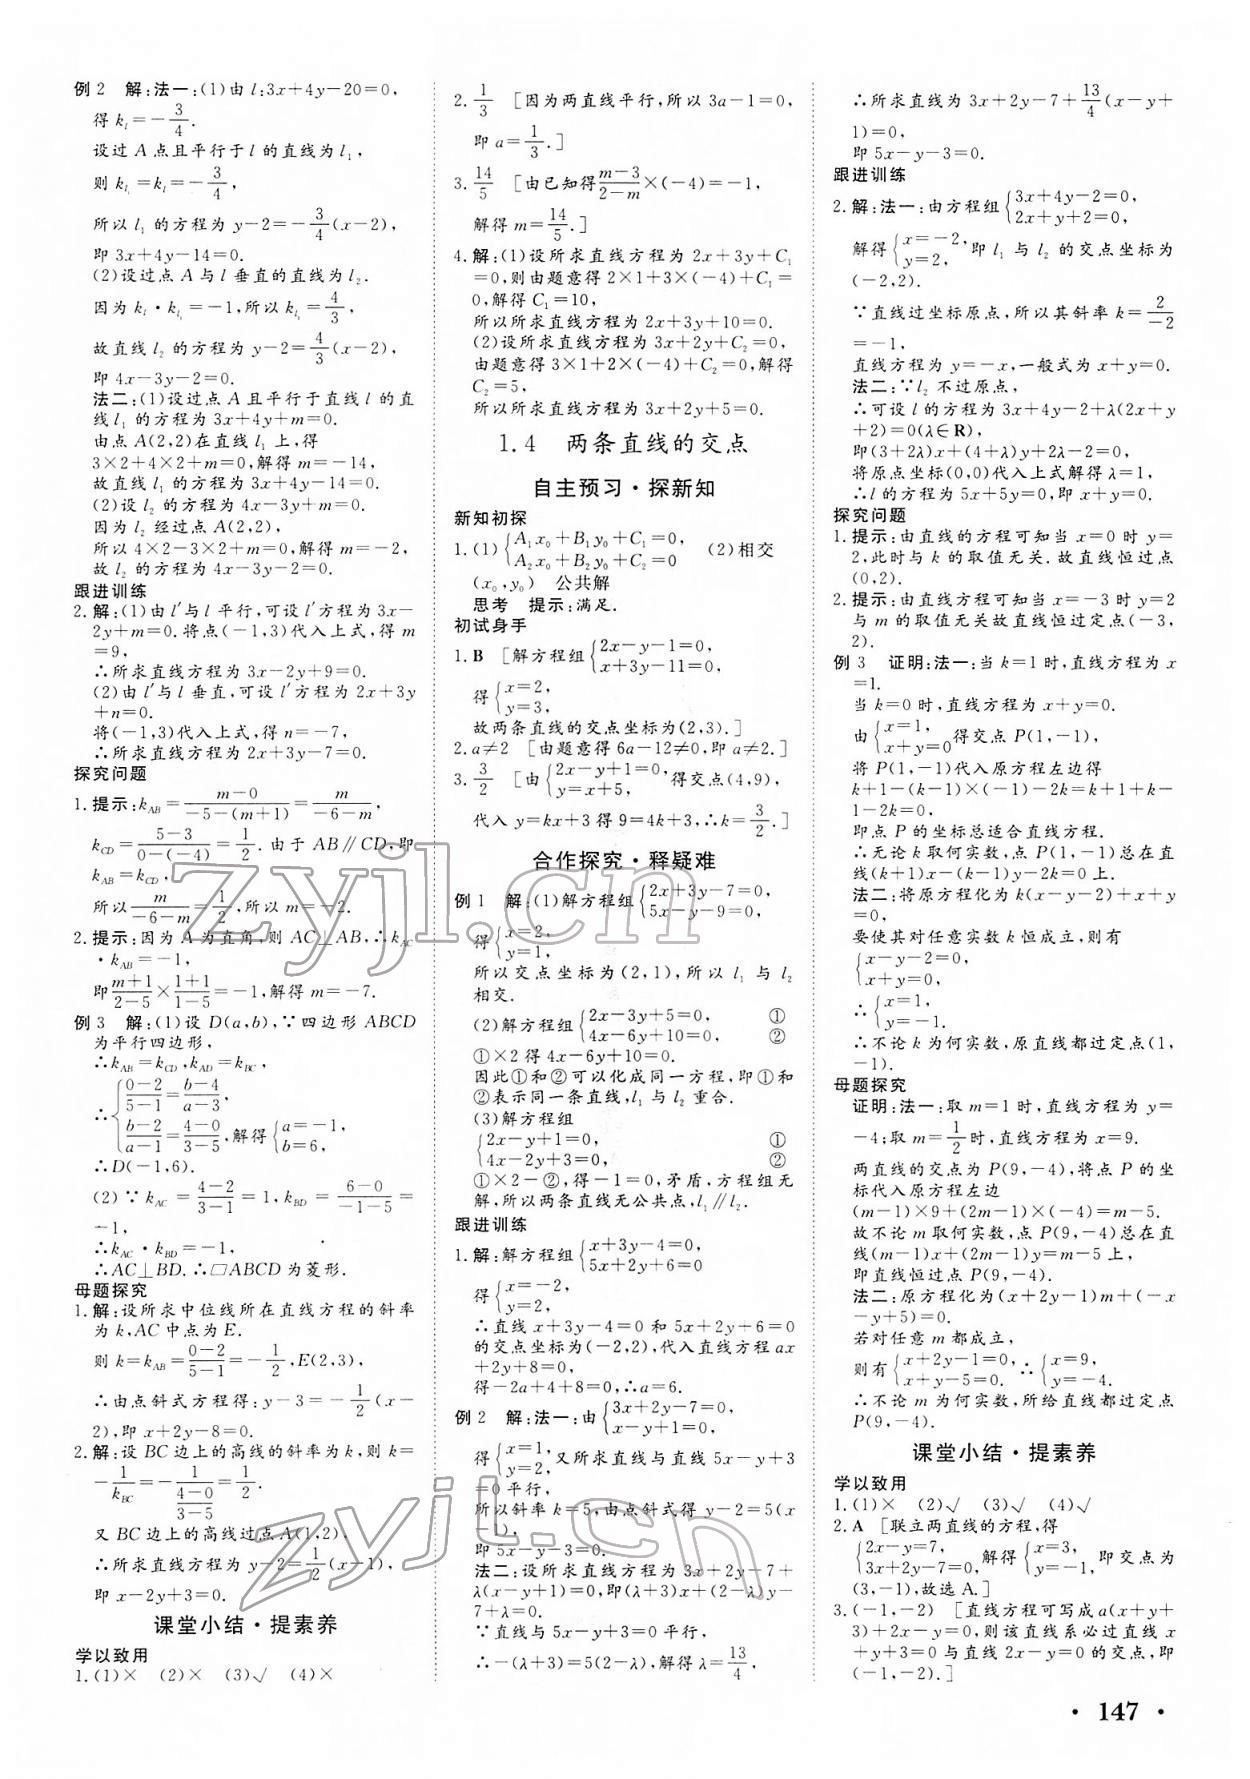 例2 解:法一:(1)由 l:3x+4y-20=0,
得 kₗ=-3/4.
设过 A 点且平行于 l 的直线为 l₁,
则 k_{l₁}=kₗ=-3/4,
所以 l₁ 的方程为 y-2=-3/4(x-2),
即 3x+4y-14=0.
(2)设过点 A 与 l 垂直的直线为 l₂.
因为 kₗ·k_{l₂}=-1,所以 k_{l₂}=4/3,
故直线 l₂ 的方程为 y-2=4/3(x-2),
即 4x-3y-2=0.
法二:(1)设过点 A 且平行于直线 l 的直
线 l₁ 的方程为 3x+4y+m=0.
由点 A(2,2)在直线 l₁ 上,得
3×2+4×2+m=0,解得 m=-14,
故直线 l₁ 的方程为 3x+4y-14=0.
(2)设 l₂ 的方程为 4x-3y+m=0.
因为 l₂ 经过点 A(2,2),
所以 4×2-3×2+m=0,解得 m=-2,
故 l₂ 的方程为 4x-3y-2=0.
跟进训练
2.解:(1)由 l′与 l 平行,可设 l′方程为 3x-
2y+m=0.将点(-1,3)代入上式,得 m
=9,
∴所求直线方程为 3x-2y+9=0.
(2)由 l′与 l 垂直,可设 l′方程为 2x+3y
+n=0.
将(-1,3)代入上式,得 n=-7,
∴所求直线方程为 2x+3y-7=0.
探究问题
1.提示:k_{AB}=(m-0)/(-5-(m+1))=m/(-6-m),
k_{CD}=(5-3)/(0-(-4))=1/2.由于 AB∥CD,即
k_{AB}=k_{CD},
所以 m/(-6-m)=1/2,所以 m=-2.
2.提示:因为 A 为直角,则 AC⊥AB,∴k_{AC}
·k_{AB}=-1,
即 (m+1)/(2-5)×(1+1)/(1-5)=-1,解得 m=-7.
例3 解:(1)设 D(a,b),∵四边形 ABCD
为平行四边形,
∴k_{AB}=k_{CD},k_{AD}=k_{BC},
∴{(0-2)/(5-1)=(b-4)/(a-3),
(b-2)/(a-1)=(4-0)/(3-5),解得{a=-1, b=6,
∴D(-1,6).
(2)∵k_{AC}=(4-2)/(3-1)=1,k_{BD}=(6-0)/(-1-5)=
-1,
∴k_{AC}·k_{BD}=-1,
∴AC⊥BD.∴▱ABCD 为菱形.
母题探究
1.解:设所求中位线所在直线方程的斜率
为 k,AC 中点为 E.
则 k=k_{AB}=(0-2)/(5-1)=-1/2,E(2,3),
∴由点斜式方程得:y-3=-1/2(x-
2),即 x+2y-8=0.
2.解:设 BC 边上的高线的斜率为 k,则 k=
-1/k_{BC}=-1/((4-0)/(3-5))=1/2.
又 BC 边上的高线过点 A(1,2),
∴所求直线方程为 y-2=1/2(x-1),
即 x-2y+3=0.
课堂小结·提素养
学以致用
1.(1)× (2)× (3)√ (4)×
2.1/3 [因为两直线平行,所以 3a-1=0,
即 a=1/3.]
3.14/5 [由已知得(m-3)/(2-m)×(-4)=-1,
解得 m=14/5.]
4.解:(1)设所求直线方程为 2x+3y+C₁
=0,则由题意得 2×1+3×(-4)+C₁=
0,解得 C₁=10,
所以所求直线方程为 2x+3y+10=0.
(2)设所求直线方程为 3x+2y+C₂=0,
由题意得 3×1+2×(-4)+C₂=0,解得
C₂=5,
所以所求直线方程为 3x+2y+5=0.
1.4 两条直线的交点
自主预习·探新知
新知初探
1.(1){A₁x₀+B₁y₀+C₁=0, A₂x₀+B₂y₀+C₂=0 (2)相交
(x₀,y₀) 公共解
思考 提示:满足.
初试身手
1.B [解方程组{2x-y-1=0, x+3y-11=0,
得{x=2, y=3,
故两条直线的交点坐标为(2,3).]
2.a≠2 [由题意得 6a-12≠0,即 a≠2.]
3.3/2 [由{2x-y+1=0, y=x+5,得交点(4,9),
代入 y=kx+3 得 9=4k+3,∴k=3/2.]
合作探究·释疑难
例1 解:(1)解方程组{2x+3y-7=0, 5x-y-9=0,
得{x=2, y=1,
所以交点坐标为(2,1),所以 l₁ 与 l₂
相交.
(2)解方程组{2x-3y+5=0, ① 4x-6y+10=0, ②
①×2 得 4x-6y+10=0.
因此①和②可以化成同一方程,即①和
②表示同一条直线,l₁ 与 l₂ 重合.
(3)解方程组
{2x-y+1=0, ①
4x-2y+3=0, ②
①×2-②,得-1=0,矛盾,方程组无
解,所以两条直线无公共点,l₁∥l₂.
跟进训练
1.解:解方程组{x+3y-4=0, 5x+2y+6=0
得{x=-2, y=2,
∴直线 x+3y-4=0 和 5x+2y+6=0
的交点坐标为(-2,2),代入直线方程 ax
+2y+8=0,
得-2a+4+8=0,∴a=6.
例2 解:法一:由{3x+2y-7=0, x-y+1=0,
得{x=1, y=2,又所求直线与直线 5x-y+3
=0 平行,
所以斜率 k=5,由点斜式得 y-2=5(x
-1),
即 5x-y-3=0.
法二:设所求直线方程为 3x+2y-7+
λ(x-y+1)=0,即(λ+3)x+(2-λ)y-
7+λ=0.
∵直线与 5x-y+3=0 平行,
∴-(λ+3)=5(2-λ),解得 λ=13/4,
∴所求直线为 3x+2y-7+13/4(x-y+
1)=0,
即 5x-y-3=0.
跟进训练
2.解:法一:由方程组{3x+4y-2=0, 2x+y+2=0,
解得{x=-2, y=2,即 l₁ 与 l₂ 的交点坐标为
(-2,2).
∵直线过坐标原点,所以其斜率 k=2/-2
=-1,
直线方程为 y=-x,一般式为 x+y=0.
法二:∵l₂ 不过原点,
∴可设 l 的方程为 3x+4y-2+λ(2x+y
+2)=0(λ∈R),
即(3+2λ)x+(4+λ)y+2λ-2=0,
将原点坐标(0,0)代入上式解得 λ=1,
∴l 的方程为 5x+5y=0,即 x+y=0.
探究问题
1.提示:由直线的方程可知当 x=0 时 y=
2,此时与 k 的取值无关.故直线恒过点
(0,2).
2.提示:由直线方程可知当 x=-3 时 y=2
与 m 的取值无关故直线恒过定点(-3,
2).
例3 证明:法一:当 k=1 时,直线方程为 x
=1.
当 k=0 时,直线方程为 x+y=0.
由{x=1, x+y=0得交点 P(1,-1),
将 P(1,-1)代入原方程左边得
k+1-(k-1)×(-1)-2k=k+1+k-
1-2k=0,
即点 P 的坐标总适合直线方程.
∴无论 k 取何实数,点 P(1,-1)总在直
线(k+1)x-(k-1)y-2k=0 上.
法二:将原方程化为 k(x-y-2)+x+y
=0,
要使其对任意实数 k 恒成立,则有
{x-y-2=0, x+y=0.
∴{x=1, y=-1.
∴不论 k 为何实数,原直线都过定点(1,
-1).
母题探究
证明:法一:取 m=1 时,直线方程为 y=
-4;取 m=1/2时,直线方程为 x=9.
两直线的交点为 P(9,-4),将点 P 的坐
标代入原方程左边
(m-1)×9+(2m-1)×(-4)=m-5.
故不论 m 取何实数,点 P(9,-4)总在直
线(m-1)x+(2m-1)y=m-5 上,
即直线恒过点 P(9,-4).
法二:原方程化为(x+2y-1)m+(-x
-y+5)=0.
若对任意 m 都成立,
则有{x+2y-1=0, x+y-5=0.∴{x=9, y=-4.
∴不论 m 为何实数,所给直线都过定点
P(9,-4).
课堂小结·提素养
学以致用
1.(1)× (2)√ (3)√ (4)√
2.A [联立两直线的方程,得
{2x-y=7, 3x+2y-7=0,解得{x=3, y=-1,即交点为
(3,-1),故选 A.]
3.(-1,-2) [直线方程可写成 a(x+y+
3)+2x-y=0,则该直线系必过直线 x
+y+3=0 与直线 2x-y=0 的交点,即
(-1,-2).]
·147·
zyjl.cn
zyjl.cn